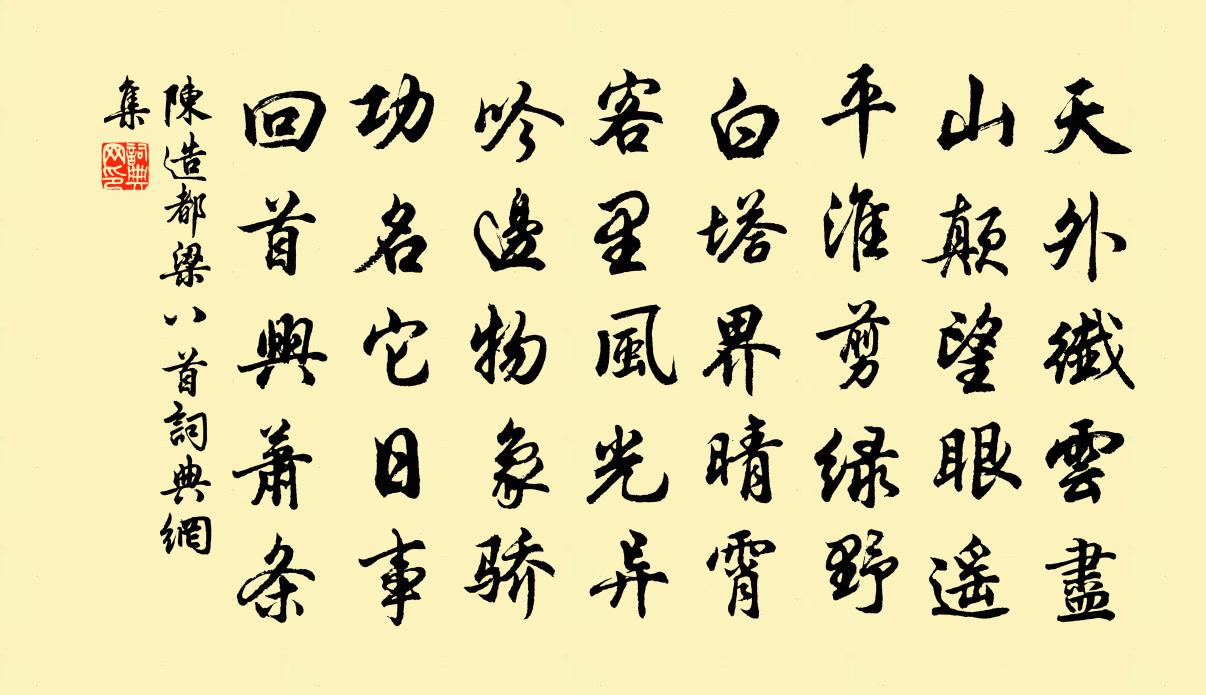 天外纖雲盡
山顛望眼遥
平淮剪绿野
白塔界晴霄
客里風光异
吟邊物象骄
功名它日事
回首興蕭条
陳造都梁八首詞典網
集
詞典網印